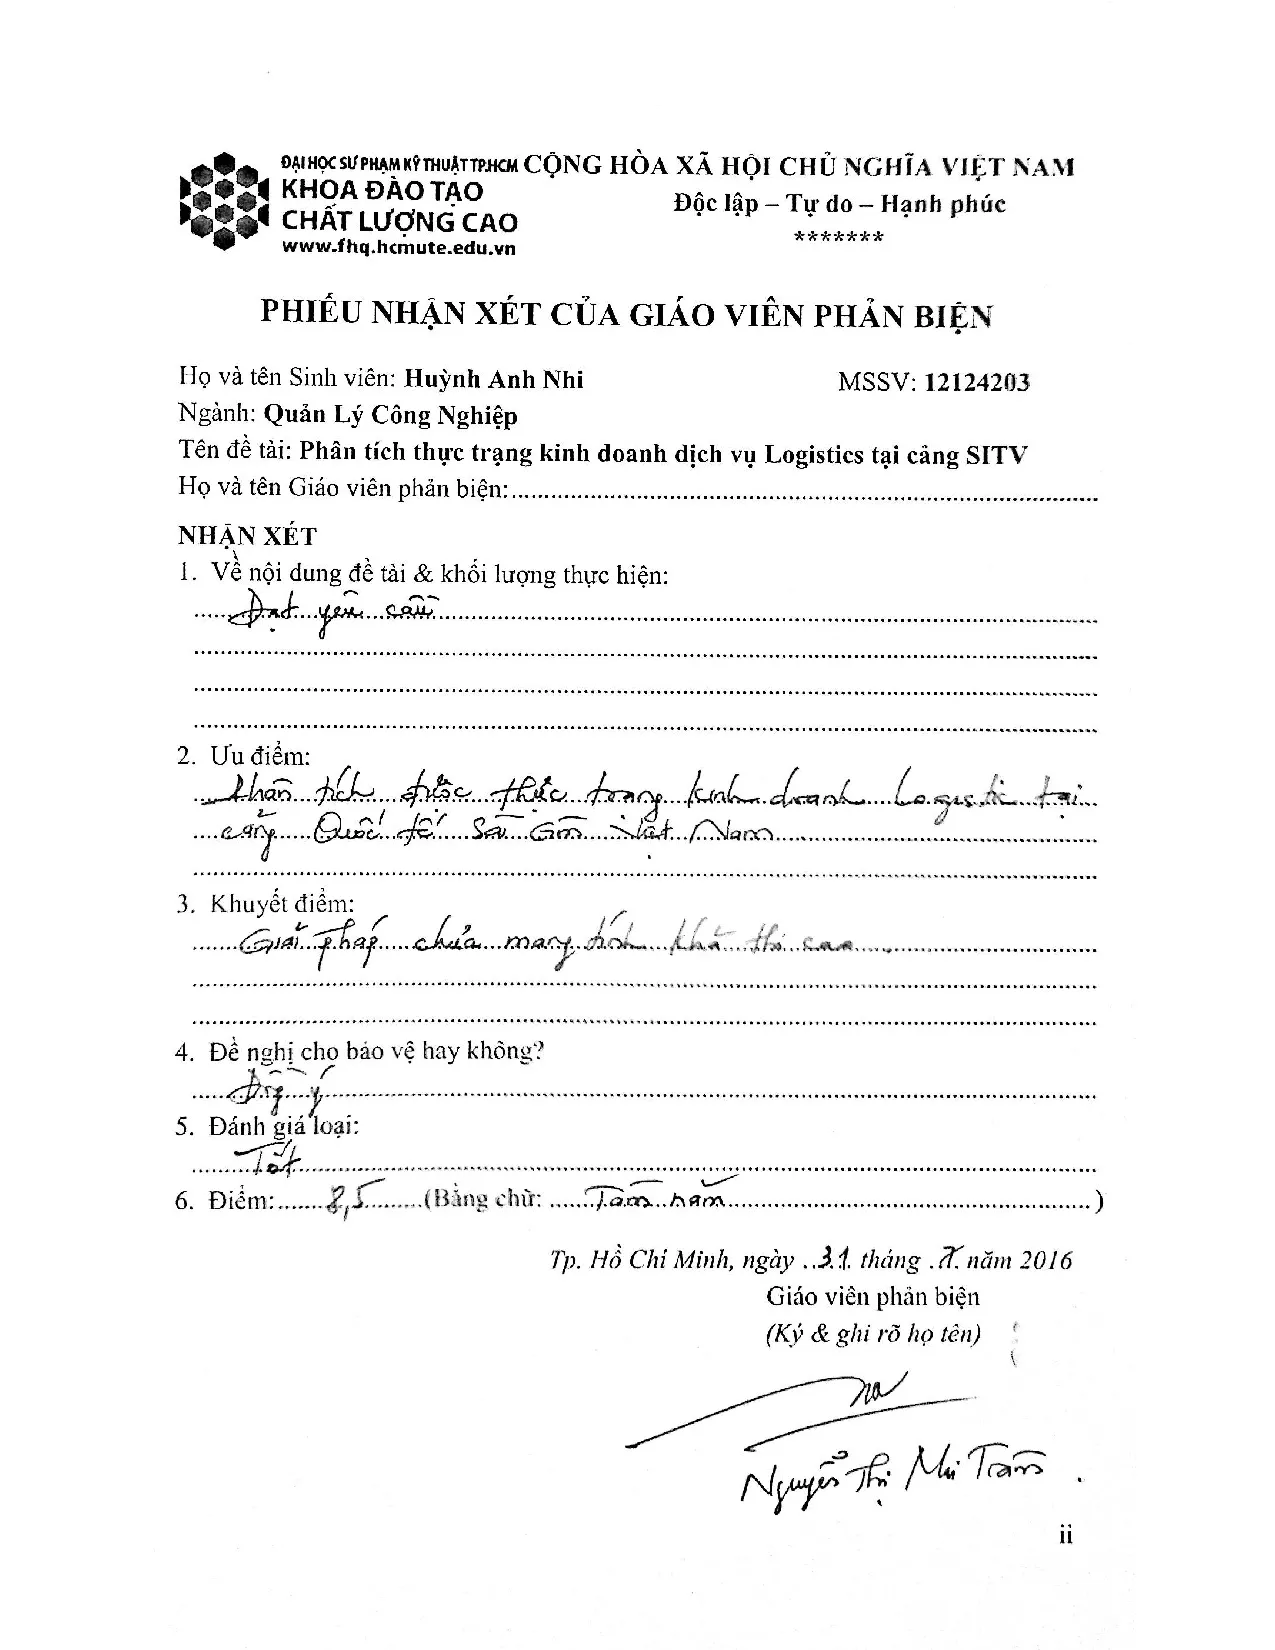 ĐẠI HỌC SƯ PHẠM KỸ THUẬT TP.HCM
KHOA ĐÀO TẠO
CHẤT LƯỢNG CAO
www.fhq.hcmute.edu.vn
CỘNG HÒA XÃ HỘI CHỦ NGHĨA VIỆT NAM
Độc lập – Tự do – Hạnh phúc
*******
PHIẾU NHẬN XÉT CỦA GIÁO VIÊN PHẢN BIỆN
Họ và tên Sinh viên: Huỳnh Anh Nhi MSSV: 12124203
Ngành: Quản Lý Công Nghiệp
Tên đề tài: Phân tích thực trạng kinh doanh dịch vụ Logistics tại cảng SITV
Họ và tên Giáo viên phản biện:
NHẬN XÉT
1. Về nội dung đề tài & khối lượng thực hiện:
Đạt yêu cầu
2. Ưu điểm:
Phân tích được thực trạng kinh doanh Logistic tại
cảng Quốc tế Sài Gòn Việt Nam
3. Khuyết điểm:
Giải pháp chưa mang tính khả thi cao
4. Đề nghị cho bảo vệ hay không?
Đồng ý
5. Đánh giá loại:
Tốt
6. Điểm: 8,5 (Bằng chữ: Tám năm )
Tp. Hồ Chí Minh, ngày 31 tháng 7 năm 2016
Giáo viên phản biện
(Ký & ghi rõ họ tên)
Nguyễn Thị Mai Trâm
ii